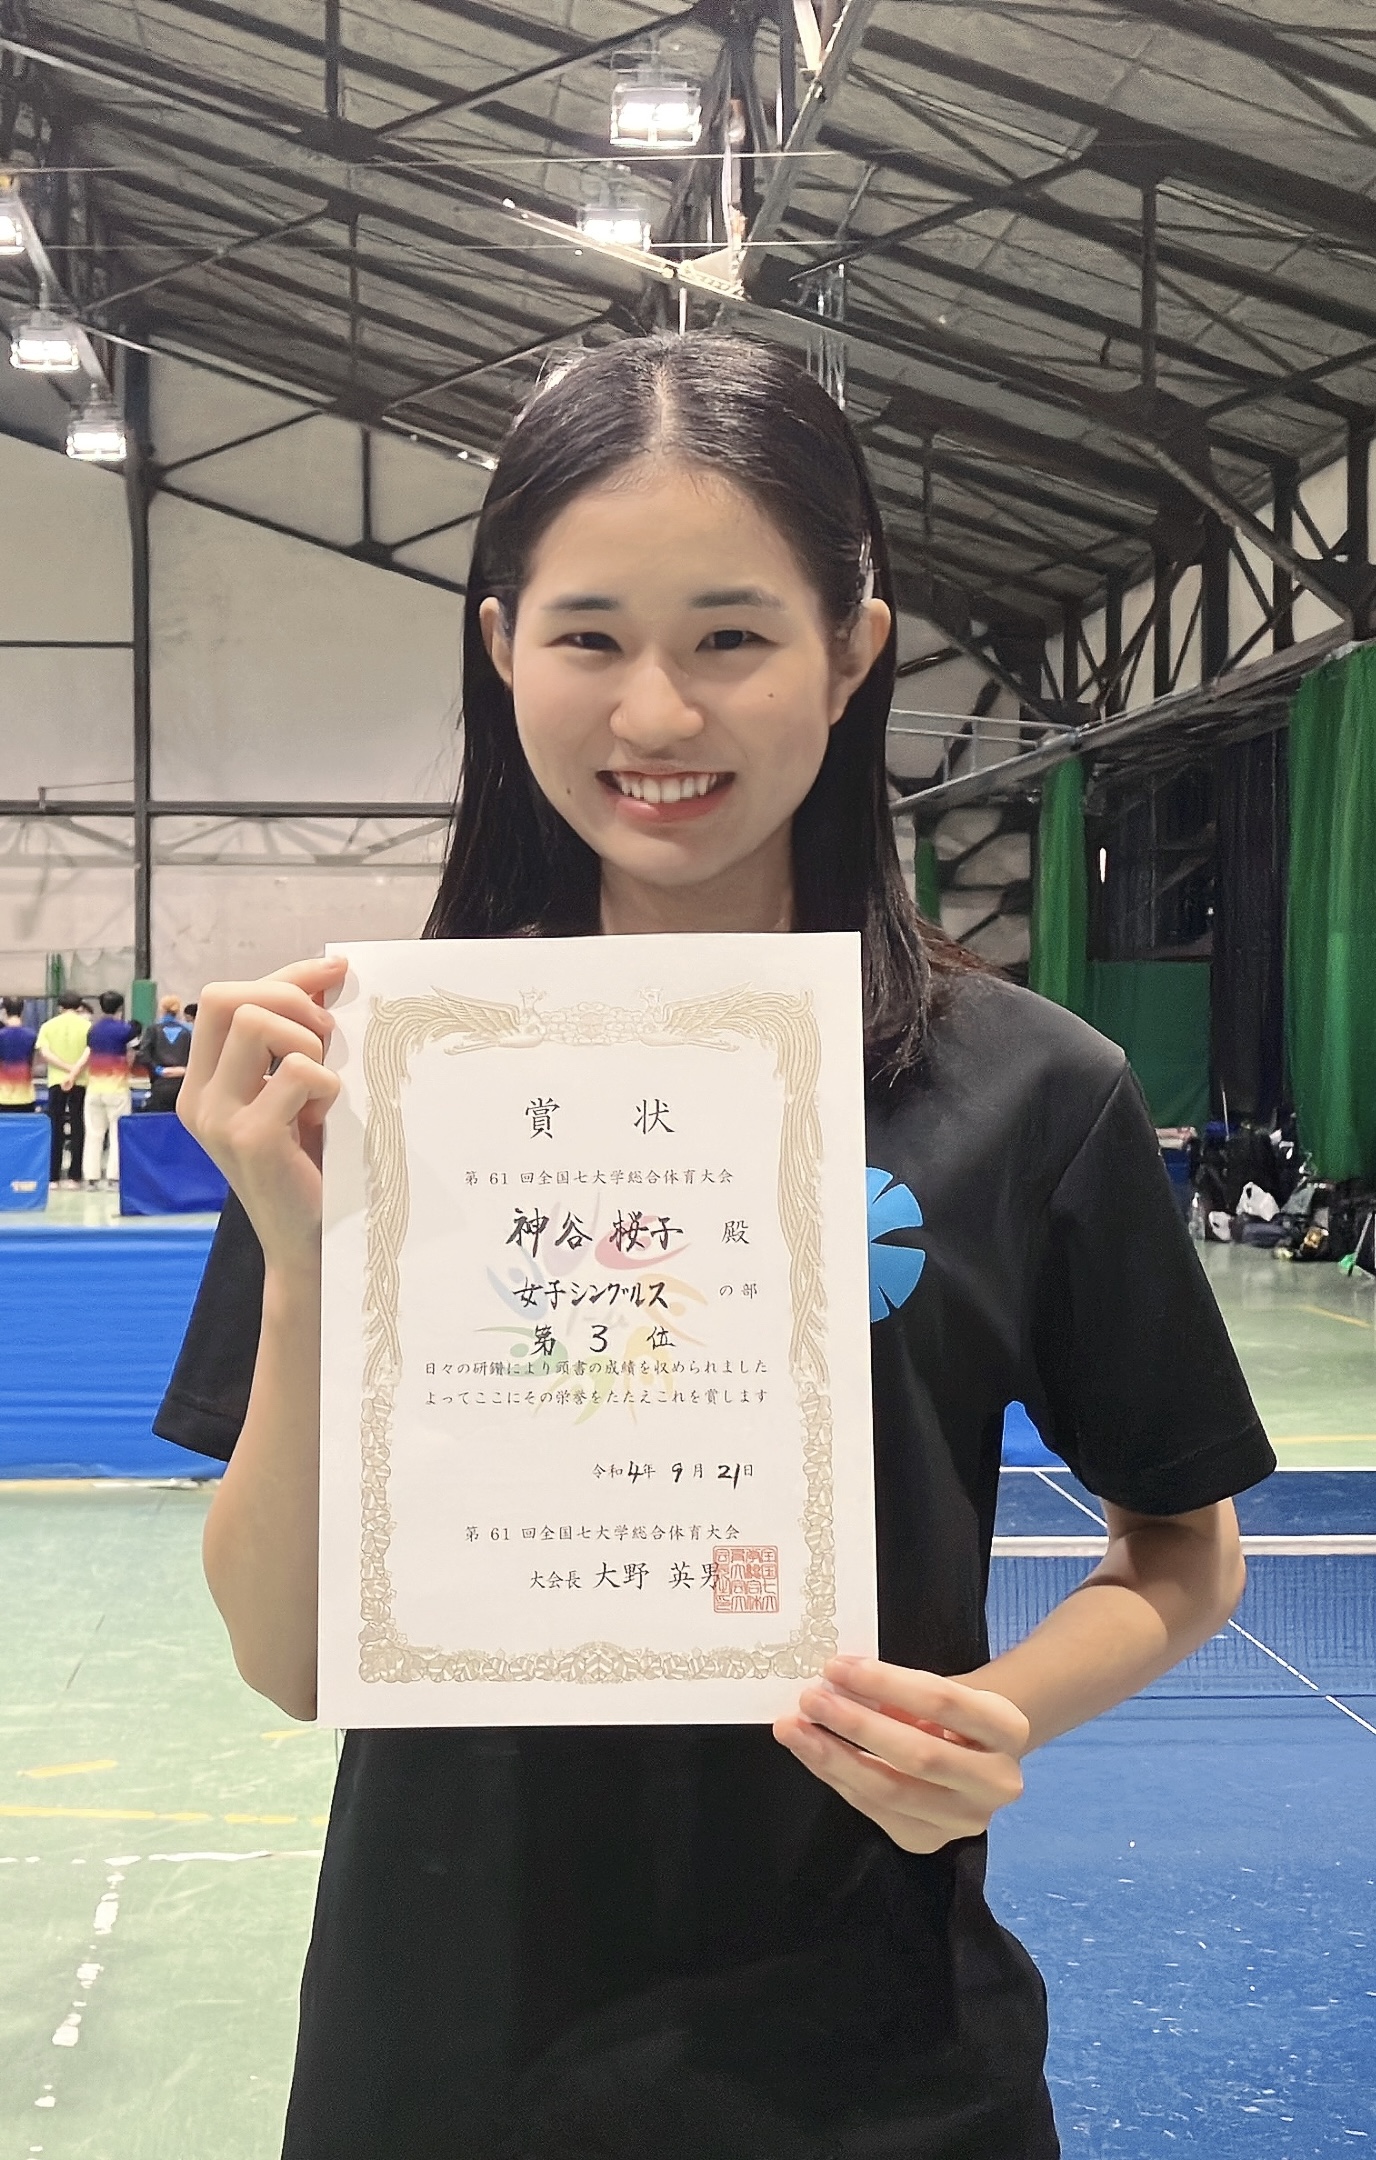 賞状
第 61 回全国七大学総合体育大会
神谷 桜子 殿
女子シングルス の部
第 3 位
日々の研鑽により頭書の成績を収められました
よってここにその栄誉をたたえこれを賞します
令和4年 9月 21日
第 61 回全国七大学総合体育大会
大会長 大野 英男